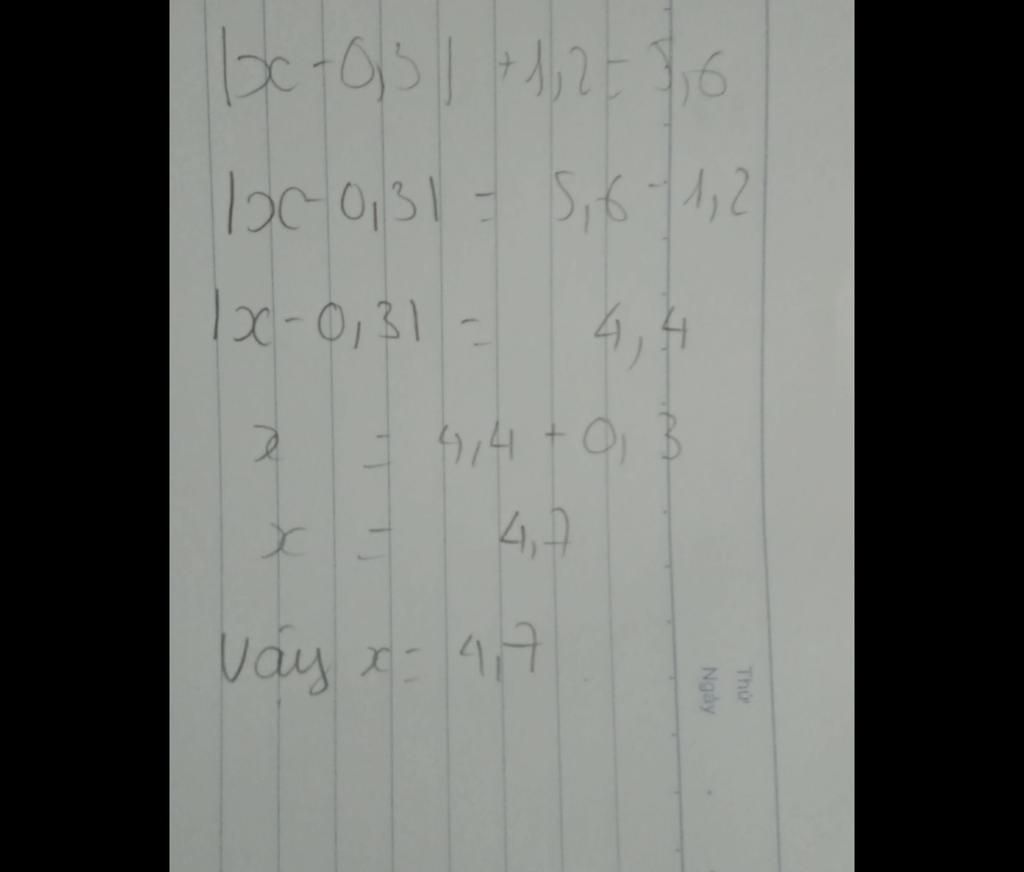 |x - 0,3| + 1,2 = 5,6
|x - 0,3| = 5,6 - 1,2
|x - 0,3| = 4,4
x = 4,4 + 0,3
x = 4,7
Vậy x = 4,7
Thứ
Ngày